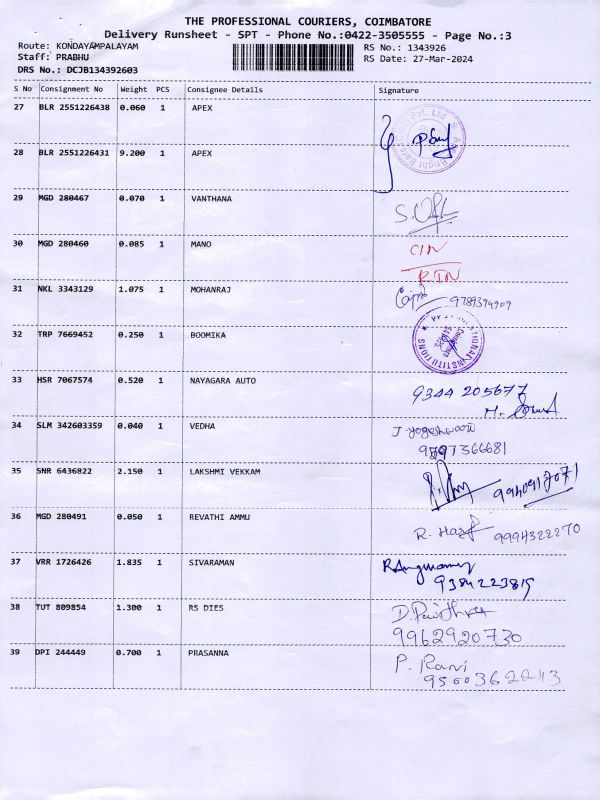 THE PROFESSIONAL COURIERS, COIMBATORE
Delivery Runsheet - SPT - Phone No.:0422-3505555 - Page No.:3
Route: KONDAYAMPALAYAM RS No.: 1343926
Staff: PRABHU RS Date: 27-Mar-2024
DRS No.: DCJB134392603
S No Consignment No Weight PCS Consignee Details Signature
27 BLR 2551226438 0.060 1 APEX
28 BLR 2551226431 9.200 1 APEX
29 MGD 280467 0.070 1 VANTHANA
30 MGD 280460 0.085 1 MANO CIN
RTN
31 NKL 3343129 1.075 1 MOHANRAJ 9789394909
32 TRP 7669452 0.250 1 BOOMIKA
33 HSR 7067574 0.520 1 NAYAGARA AUTO 9344 205677
34 SLM 342603359 0.040 1 VEDHA J. yogeshwari
35 SNR 6436822 2.150 1 LAKSHMI VEKKAM
36 MGD 280491 0.050 1 REVATHI AMMU 9994322270
37 VRR 1726426 1.835 1 SIVARAMAN
9384223815
38 TUT 809854 1.300 1 RS DIES
9962920730
39 DPI 244449 0.700 1 PRASANNA P. Rani